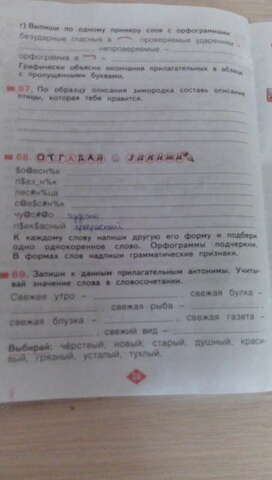 г) Выпиши по одному примеру слов с орфограммами
безударные гласные в ⌒, проверяемые ударением –
– непроверяемые –
орфограмма в
Графически объясни окончания прилагательных в абзаце
с пропущенными буквами.
67. По образцу описания зимородка составь описание
птицы, которая тебе нравится.
68. ОТГАДАЙ и запиши
лес#н%ца
чу@с#@о
п$ек$асный
К каждому слову напиши другую его форму и подбери
одно однокоренное слово. Орфограммы подчеркни.
В формах слов надпиши грамматические признаки.
69. Запиши к данным прилагательным антонимы. Учиты-
вай значение слова в словосочетании.
Свежее утро – свежая булка –
свежая рыба –
свежая блузка – свежая газета –
свежий вид –
Выбирай: чёрствый, новый, старый, душный, краси-
вый, грязный, усталый, тухлый.